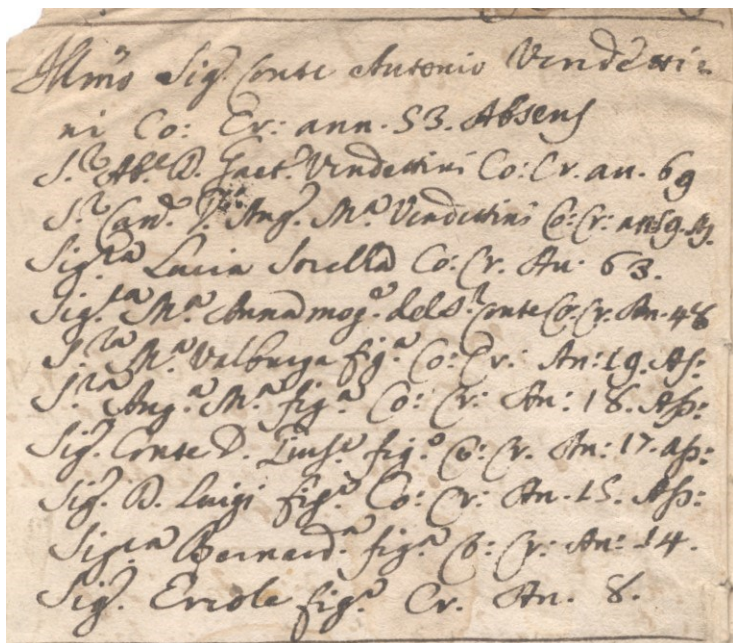 Illmo Sig.r Conte Antonio Vendetti=
ni Co: Cr: ann. 53. Absens
S.r Ab.e D. Gaet.o Vendettini Co: Cr. an. 69
S.r Can.co Ang. M.a Vendettini Co: Cr: an. 59.
Sig.ra Lucia Sorella Co: Cr. An: 63.
Sig.ra M.a Anna mog.e del S.r Conte Co. Cr. An. 48
S.ra M.a Valburga fig.a Co: Cr: An: 19. As:
S.ra Ang.a M.a fig.a Co: Cr: An: 18. Ass:
Sig.r Conte D. Gius.e fig.o Co: Cr. An: 17. ass:
Sig.r D. Luigi fig.o Co: Cr: An. 15. Ass:
Sig.ra Bernard.a fig.a Co: Cr: An: 14.
Sig.r Ercole fig.o Cr. An. 8.